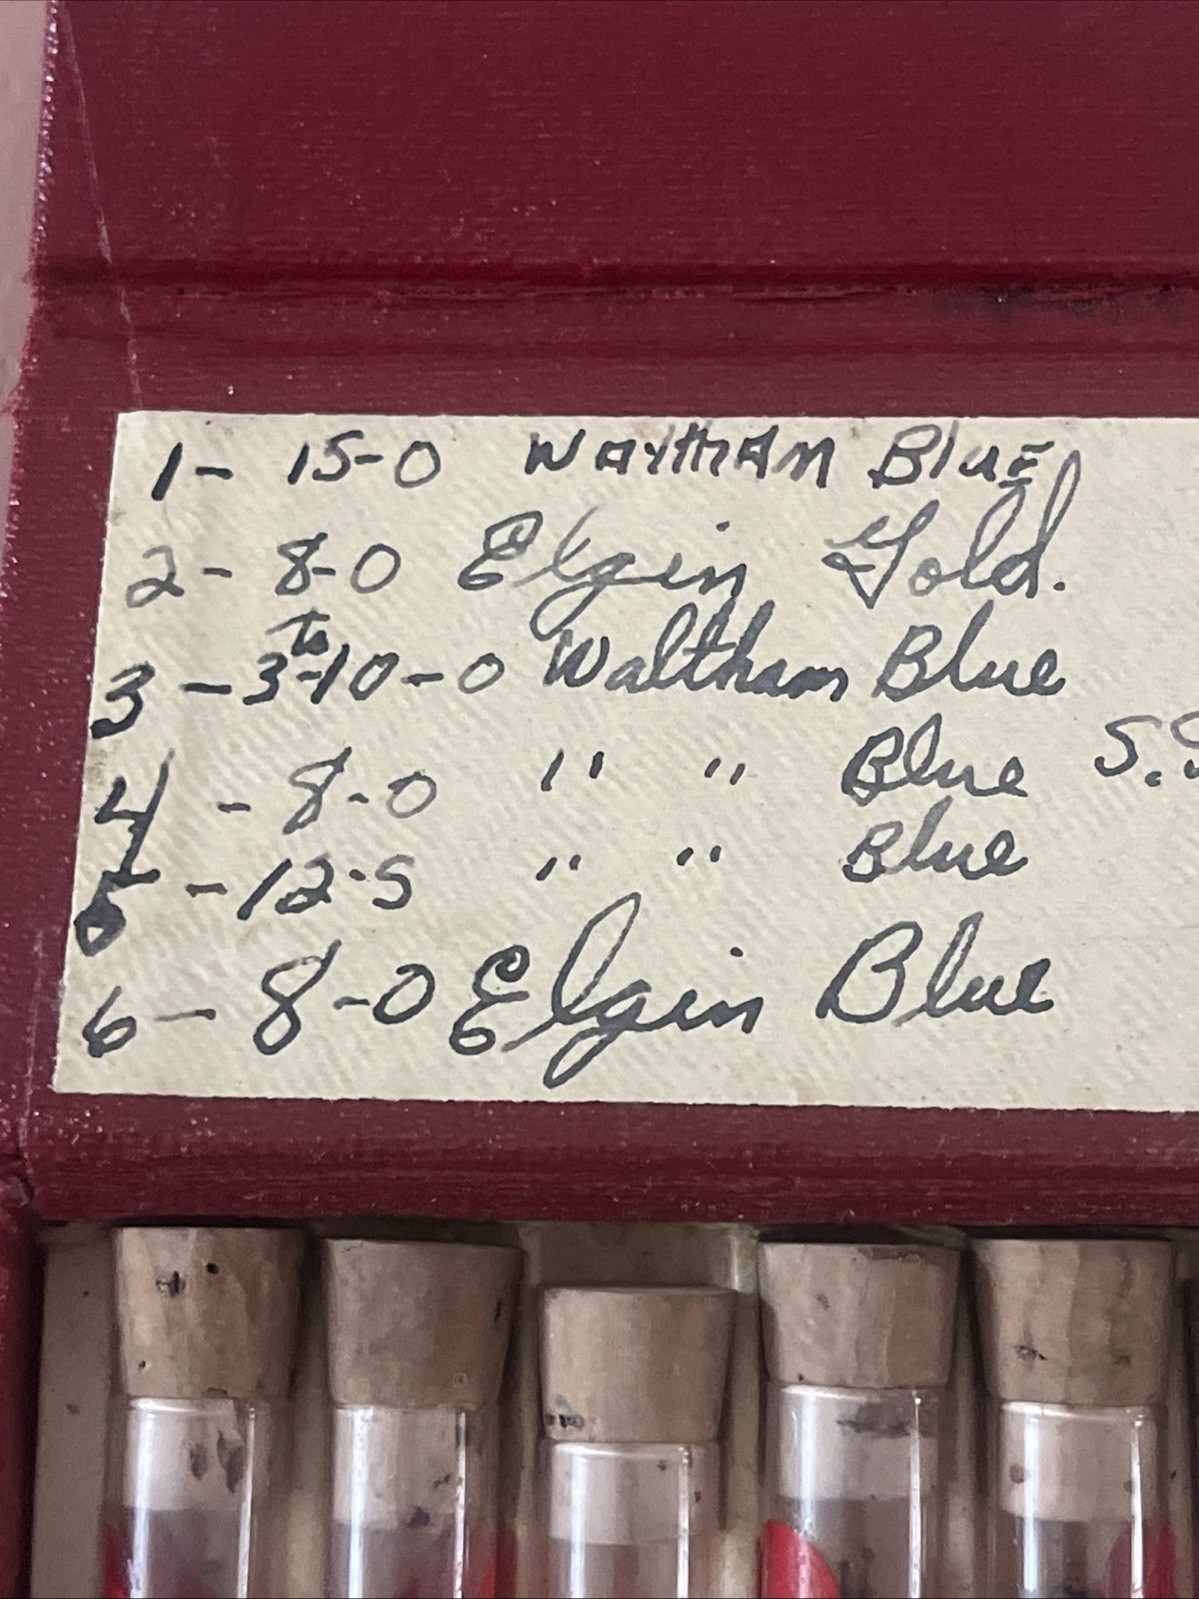 1- 15-0 Waltham Blue
2- 8-0 Elgin Gold.
3 - 3 to 10-0 Waltham Blue
4 - 8-0 " " Blue S.S
5 - 12-S " " Blue
6 - 8-0 Elgin Blue